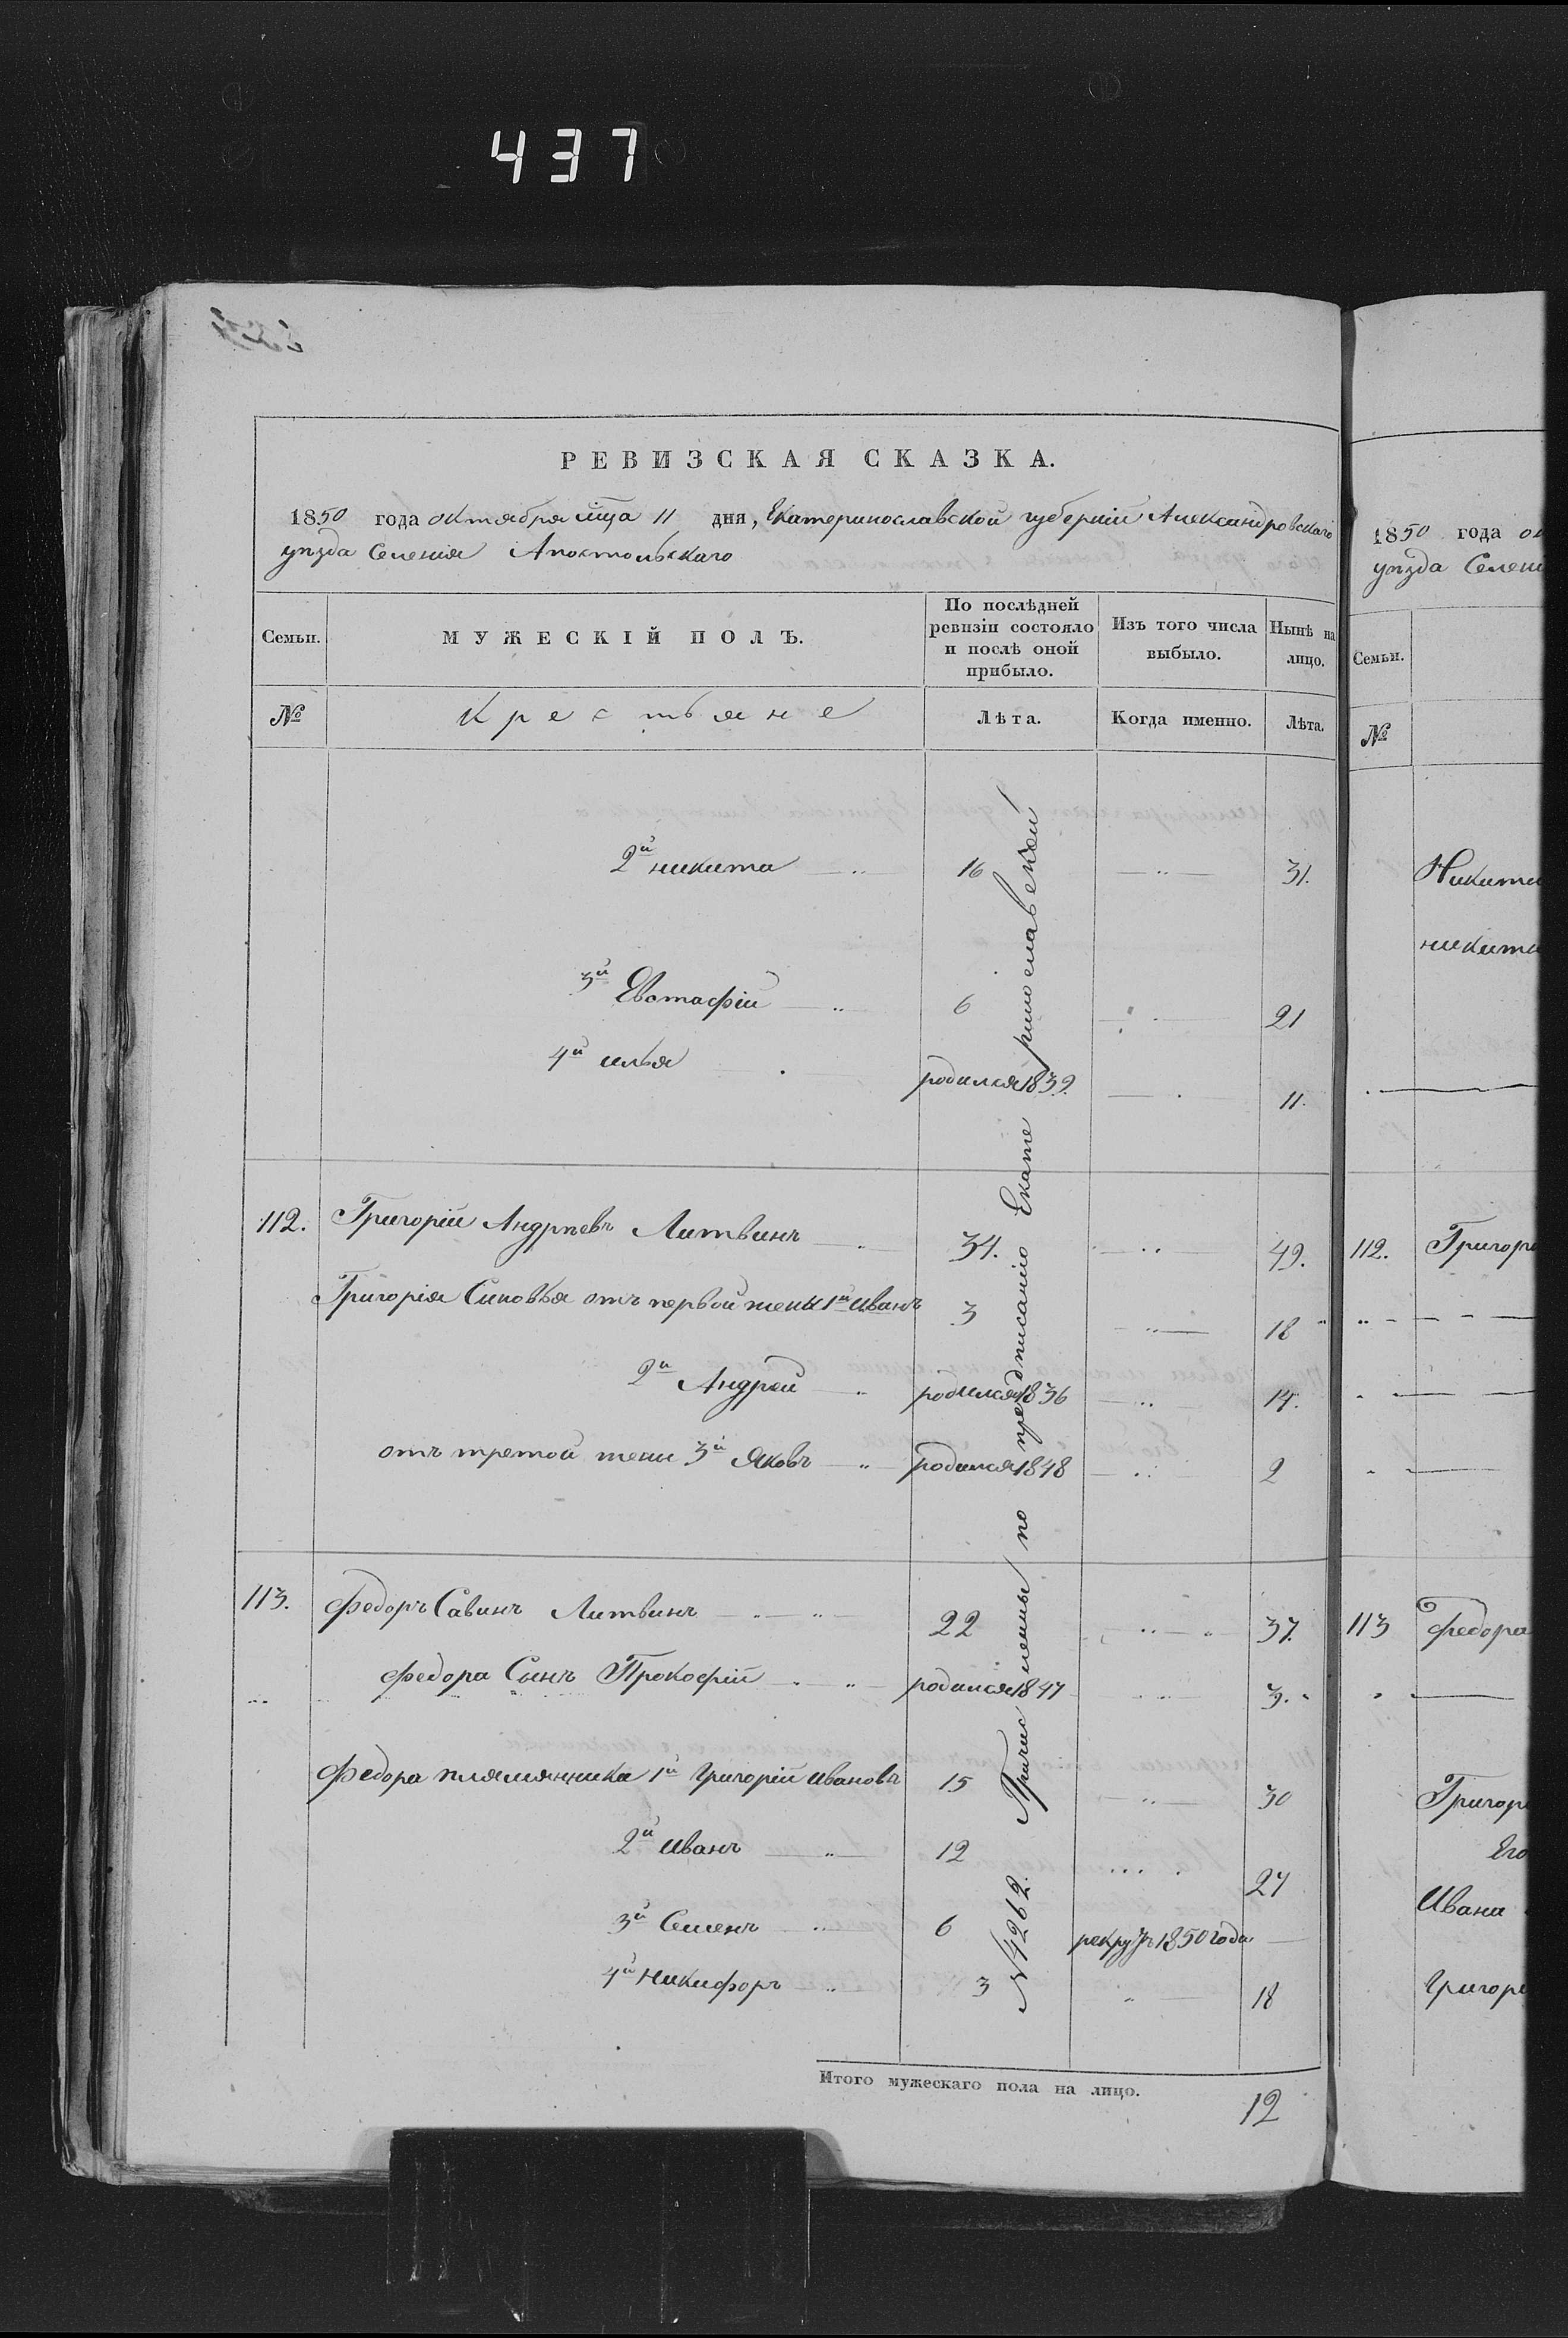 437
РЕВИЗСКАЯ СКАЗКА.
1850 года октября мца 11 дня, Екатеринославской губерніи Александровскаго
уѣзда Селенія Апостольскаго
Семьи.
МУЖЕСКІЙ ПОЛЪ.
По послѣдней ревизіи состояло и послѣ оной прибыло.
Изъ того числа выбыло.
Нынѣ на лицо.
№
Крестьяне
Лѣта.
Когда именно.
Лѣта.
2й никита 16 31.
3й Евстафій 6 21
4й илья родился 1839. 11.
112. Григорій Андрѣевъ Литвинъ 34. 49.
Григорія Синовья отъ первой жены 1й иванъ 3 18
2й Андрей родился 1836 14.
отъ третой жены 3й Яковъ родился 1848 2
113. Федоръ Савинъ Литвинъ 22 37.
Федора Сынъ Прокофій родился 1847 3.
Федора племянника 1й Григорій ивановъ 15 30
2й иванъ 12 27
3й Семенъ 6 рекрутъ 1850 года
4й Никифоръ 3 18
Причисленны по предписанію Екатеринославской
№ 4262.
Итого мужескаго пола на лицо.
12
1850 года ок
уѣзда Селен
Семьи.
№
Никита
никита
112. Григор
113 Федора
Григор
Его
Ивана
Григор